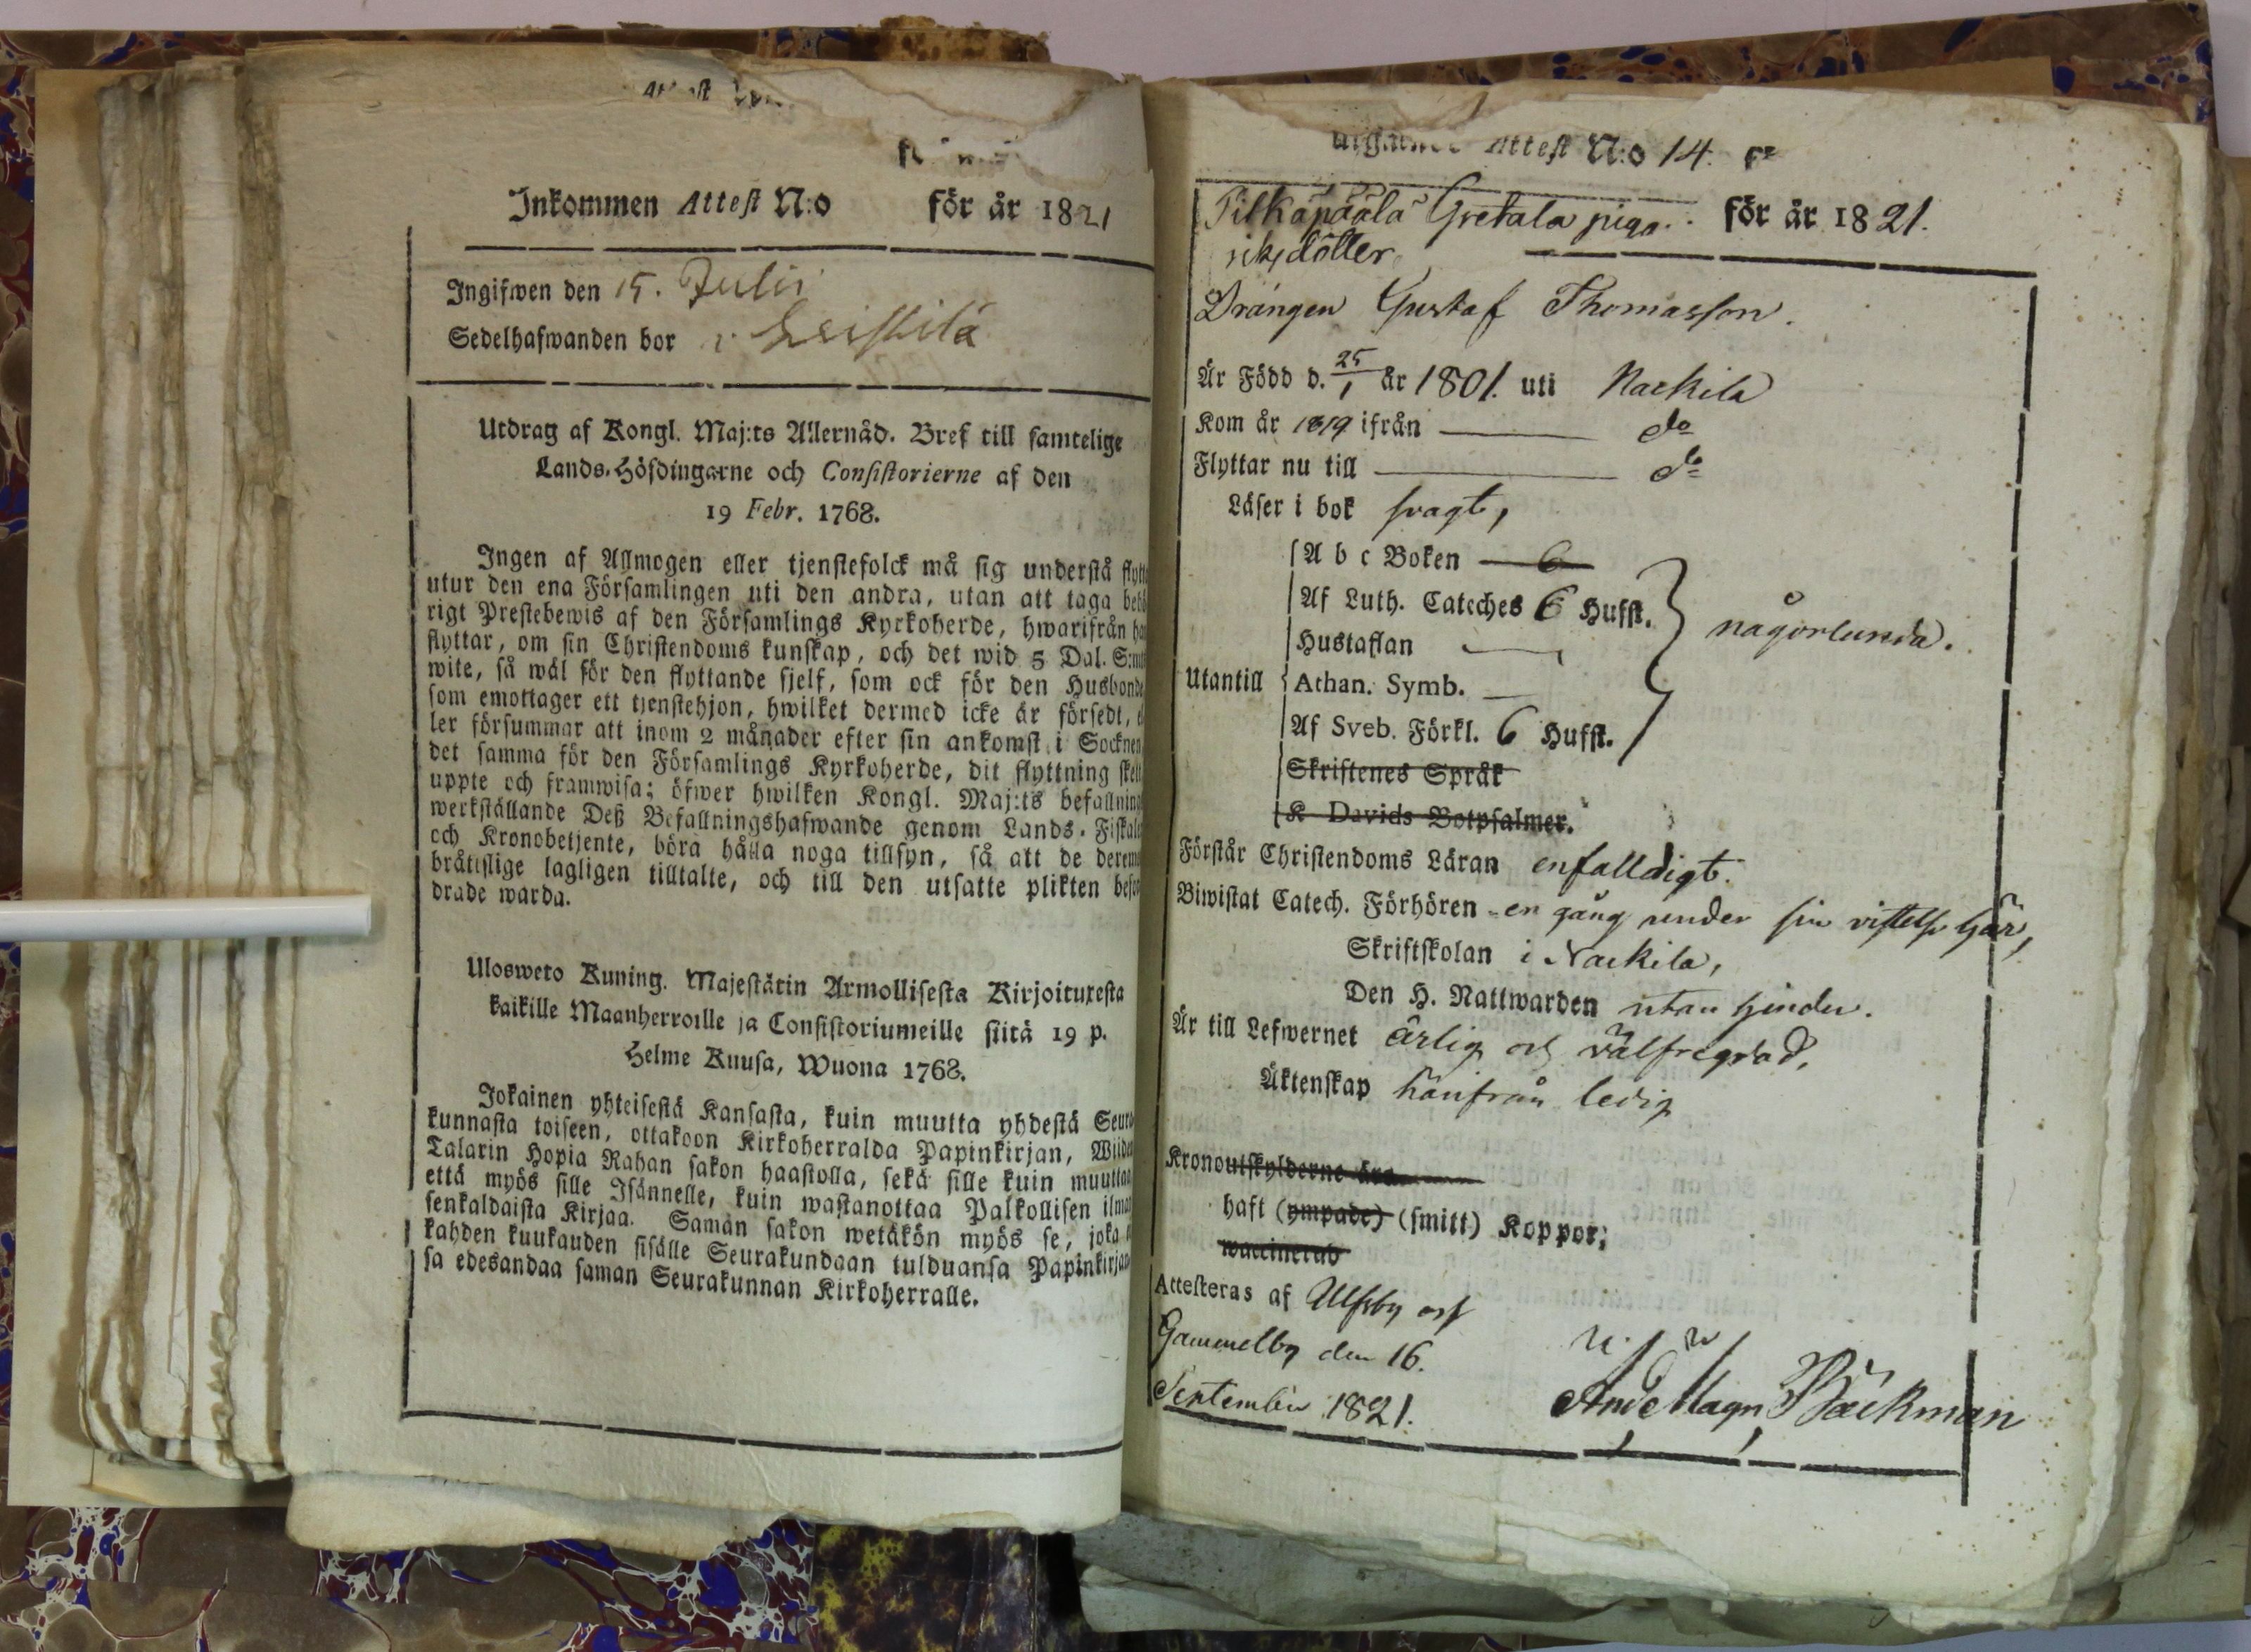 Inkommen Attest N:o för år 1821
Ingifwen den 15. Julii
Sedelhafwanden bor i
Utdrag af Kongl. Maj:ts Allernåd. Bref till samtelige
Lands-Höfdingarne och Consistorierne af den
19 Febr. 1768.
Ingen af Allmogen eller tjenstefolck må sig understå flytta
utur den ena Församlingen uti den andra, utan att taga behö
rigt Prestebewis af den Församlings Kyrkoherde, hwarifrån ha
flyttar, om sin Christendoms kunskap, och det wid 5 Dal. S:mt
wite, så wäl för den flyttande sjelf, som ock för den Husbonde
som emottager ett tjenstehjon, hwilket dermed icke är försedt, e
ler försummar att inom 2 månader efter sin ankomst i Socknen
det samma för den Församlings Kyrkoherde, dit flyttning skett
uppte och framwisa; öfwer hwilken Kongl. Maj:ts befallning
werkställande Deß Befallningshafwande genom Lands-Fiskale
och Kronobetjente, böra hålla noga tillsyn, så att de derem
bråttslige lagligen tilltalte, och till den utsatte plikten befor
drade warda.
Ulosweto Kuning. Majestätin Armollisesta Kirjoituxesta
kaikille Maanherroille ja Consistoriumeille siitä 19 p.
Helme Kuusa, Wuona 1768.
Jokainen yhteisestä Kansasta, kuin muutta yhdestä Seura
kunnasta toiseen, ottakoon Kirkoherralda Papinkirjan, Wiiden
Talarin Hopia Rahan sakon haastolla, sekä sille kuin muuttaa
että myös sille Isännelle, kuin wastanottaa Palkollisen ilman
senkaldaista Kirjaa. Saman sakon wetäkön myös se, joka
kahden kuukauden sisälle Seurakundaan tulduansa Papinkirjaan
sa edesandaa saman Seurakunnan Kirkoherralle.
Attest N:o 14. för
Pilkäpäälä Gretala piga. för år 1821.
dotter
Drängen Gustaf Thomasson.
Är Född d. 25/1 år 1801. uti Nackila
Kom år 1819 ifrån do
Flyttar nu till do
Läser i bok svagt,
A b c Boken 6
Af Luth. Cateches 6 Hufst.
Hustaflan
någorlunda.
Utantill Athan. Symb.
Af Sveb. Förkl. 6 Hufst.
Skriftenes Språk
K Davids Botpsalmer.
Förstår Christendoms Läran enfalldigt.
Biwistat Catech. Förhören en gång under sin vistelse här,
Skriftskolan i Nackila,
Den H. Nattwarden utan hinder.
Är till Lefwernet ärlig och välfregdad,
Äktenskap härifrån ledig
Kronoutskylderne
haft (ympade) (smitt) Koppor;
waccinerad
Attesteras af Ulfsby och
Gammelby den 16.
September 1821.
And Magn Bäckman